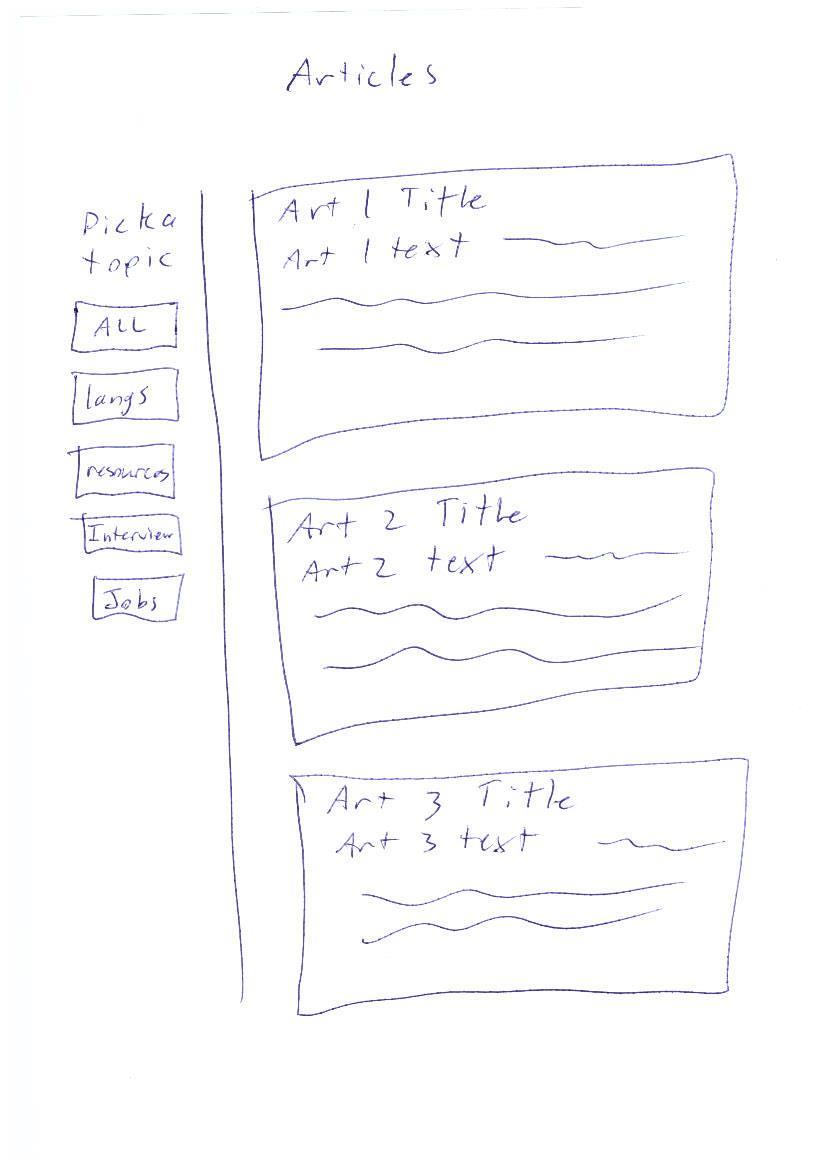 Articles
Pick a
topic
ALL
langs
resources
Interview
Jobs
Art 1 Title
Art 1 text
Art 2 Title
Art 2 text
Art 3 Title
Art 3 text